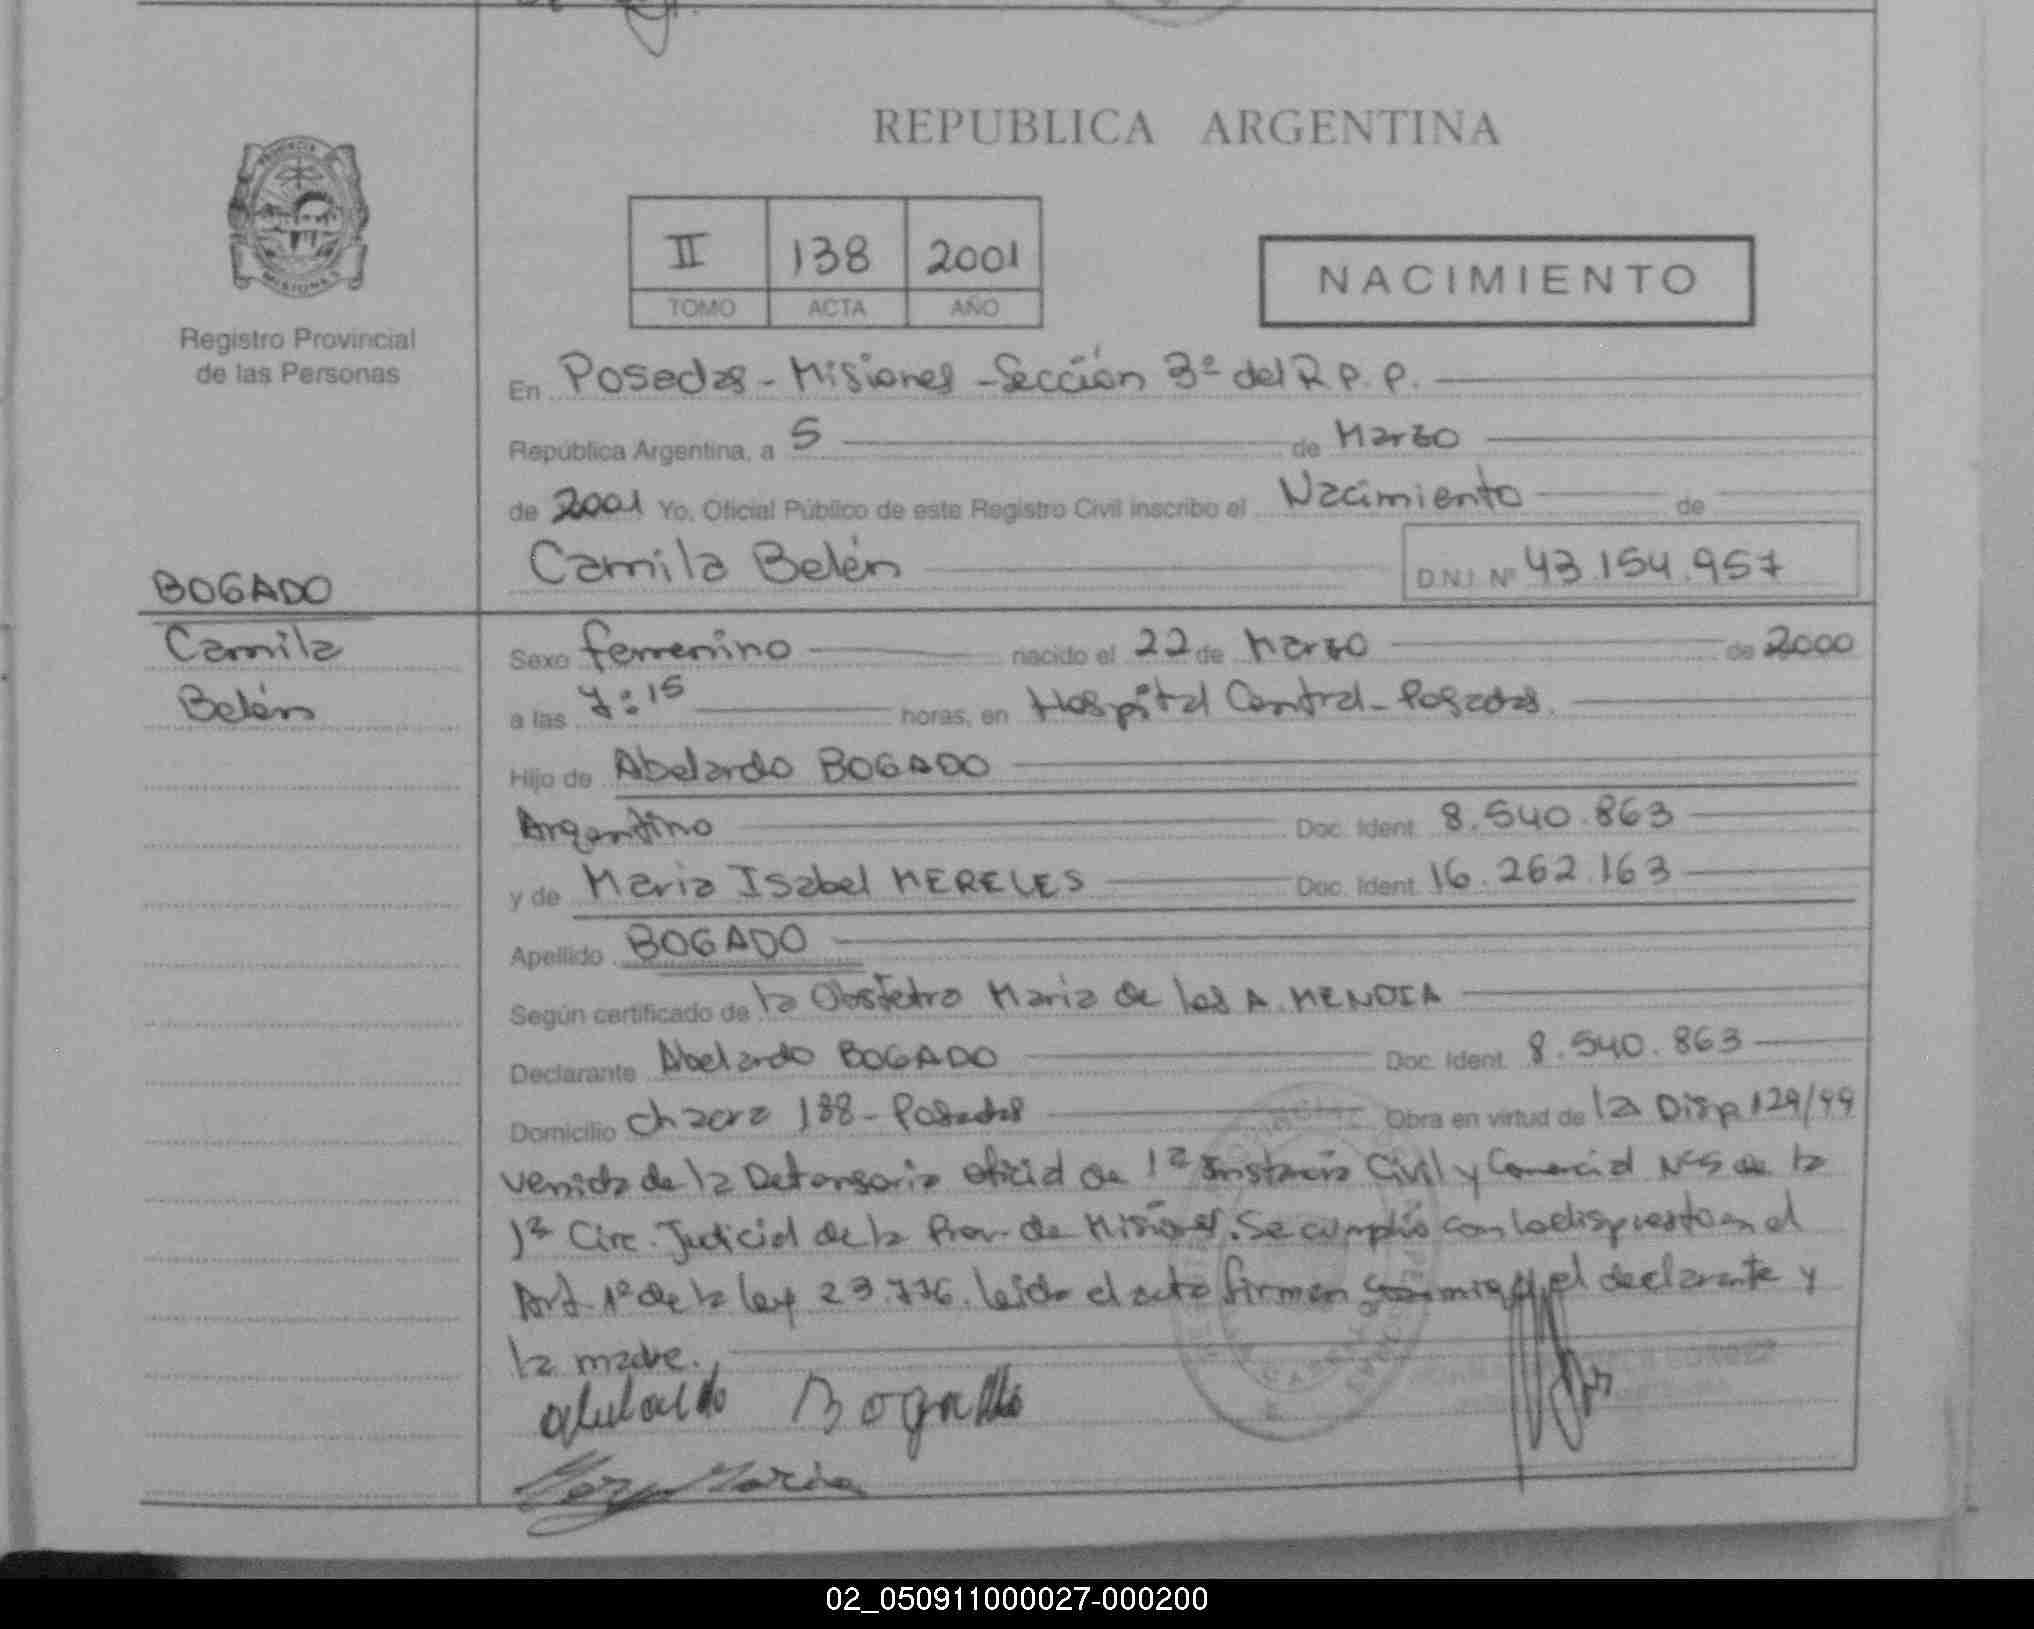 REPUBLICA ARGENTINA
PROVINCIA
MISIONES
II 138 2001
TOMO ACTA AÑO
NACIMIENTO
Registro Provincial
de las Personas
En Posadas - Misiones - Sección 3ª del R.P.P.
República Argentina, a 5 de Marzo
de 2001 Yo, Oficial Público de este Registro Civil inscribo el Nacimiento de
Camila Belén D.N.I. Nº 43.154.957
BOGADO
Camila
Belén
Sexo femenino nacido el 22 de Marzo de 2000
a las 7:15 horas, en Hospital Central - Posadas.
Hijo de Abelardo BOGADO
Argentino Doc. Ident. 8.540.863
y de Maria Isabel MERELES Doc. Ident. 16.262.163
Apellido BOGADO
Según certificado de la Obstetra Maria de los A. MENDIA
Declarante Abelardo BOGADO Doc. Ident. 8.540.863
Domicilio Chacra 188 - Posadas Obra en virtud de la Disp 129/99
venida de la Defensoria oficial de 1ª Instancia Civil y Comercial Nº 5 de la
1ª Circ. Judicial de la Prov. de Misiones. Se cumplió con lo dispuesto en el
Art. 1º de la ley 23.776. leida el acta firman conmigo el declarante y
la madre.
Bogado
Maria
02_050911000027-000200